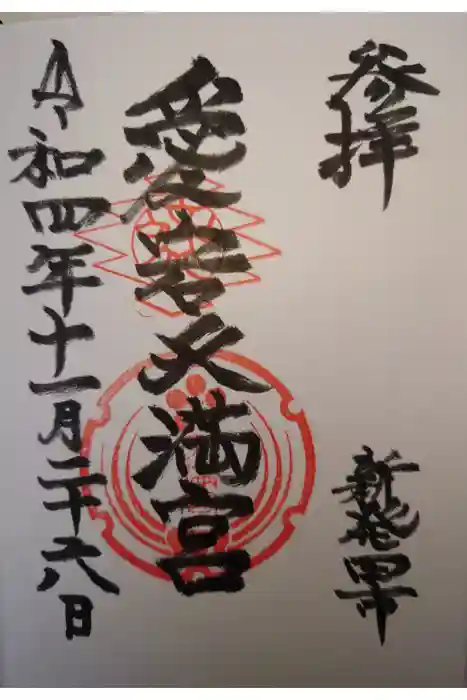 参拝
新発田
愛宕天満宮
令和四年十一月二十六日